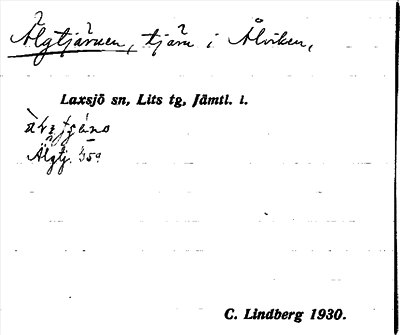 Älgtjärnen, tjärn i Ålviken,
Laxsjö sn, Lits tg, Jämtl. l.
Älgtj. 359
C. Lindberg 1930.